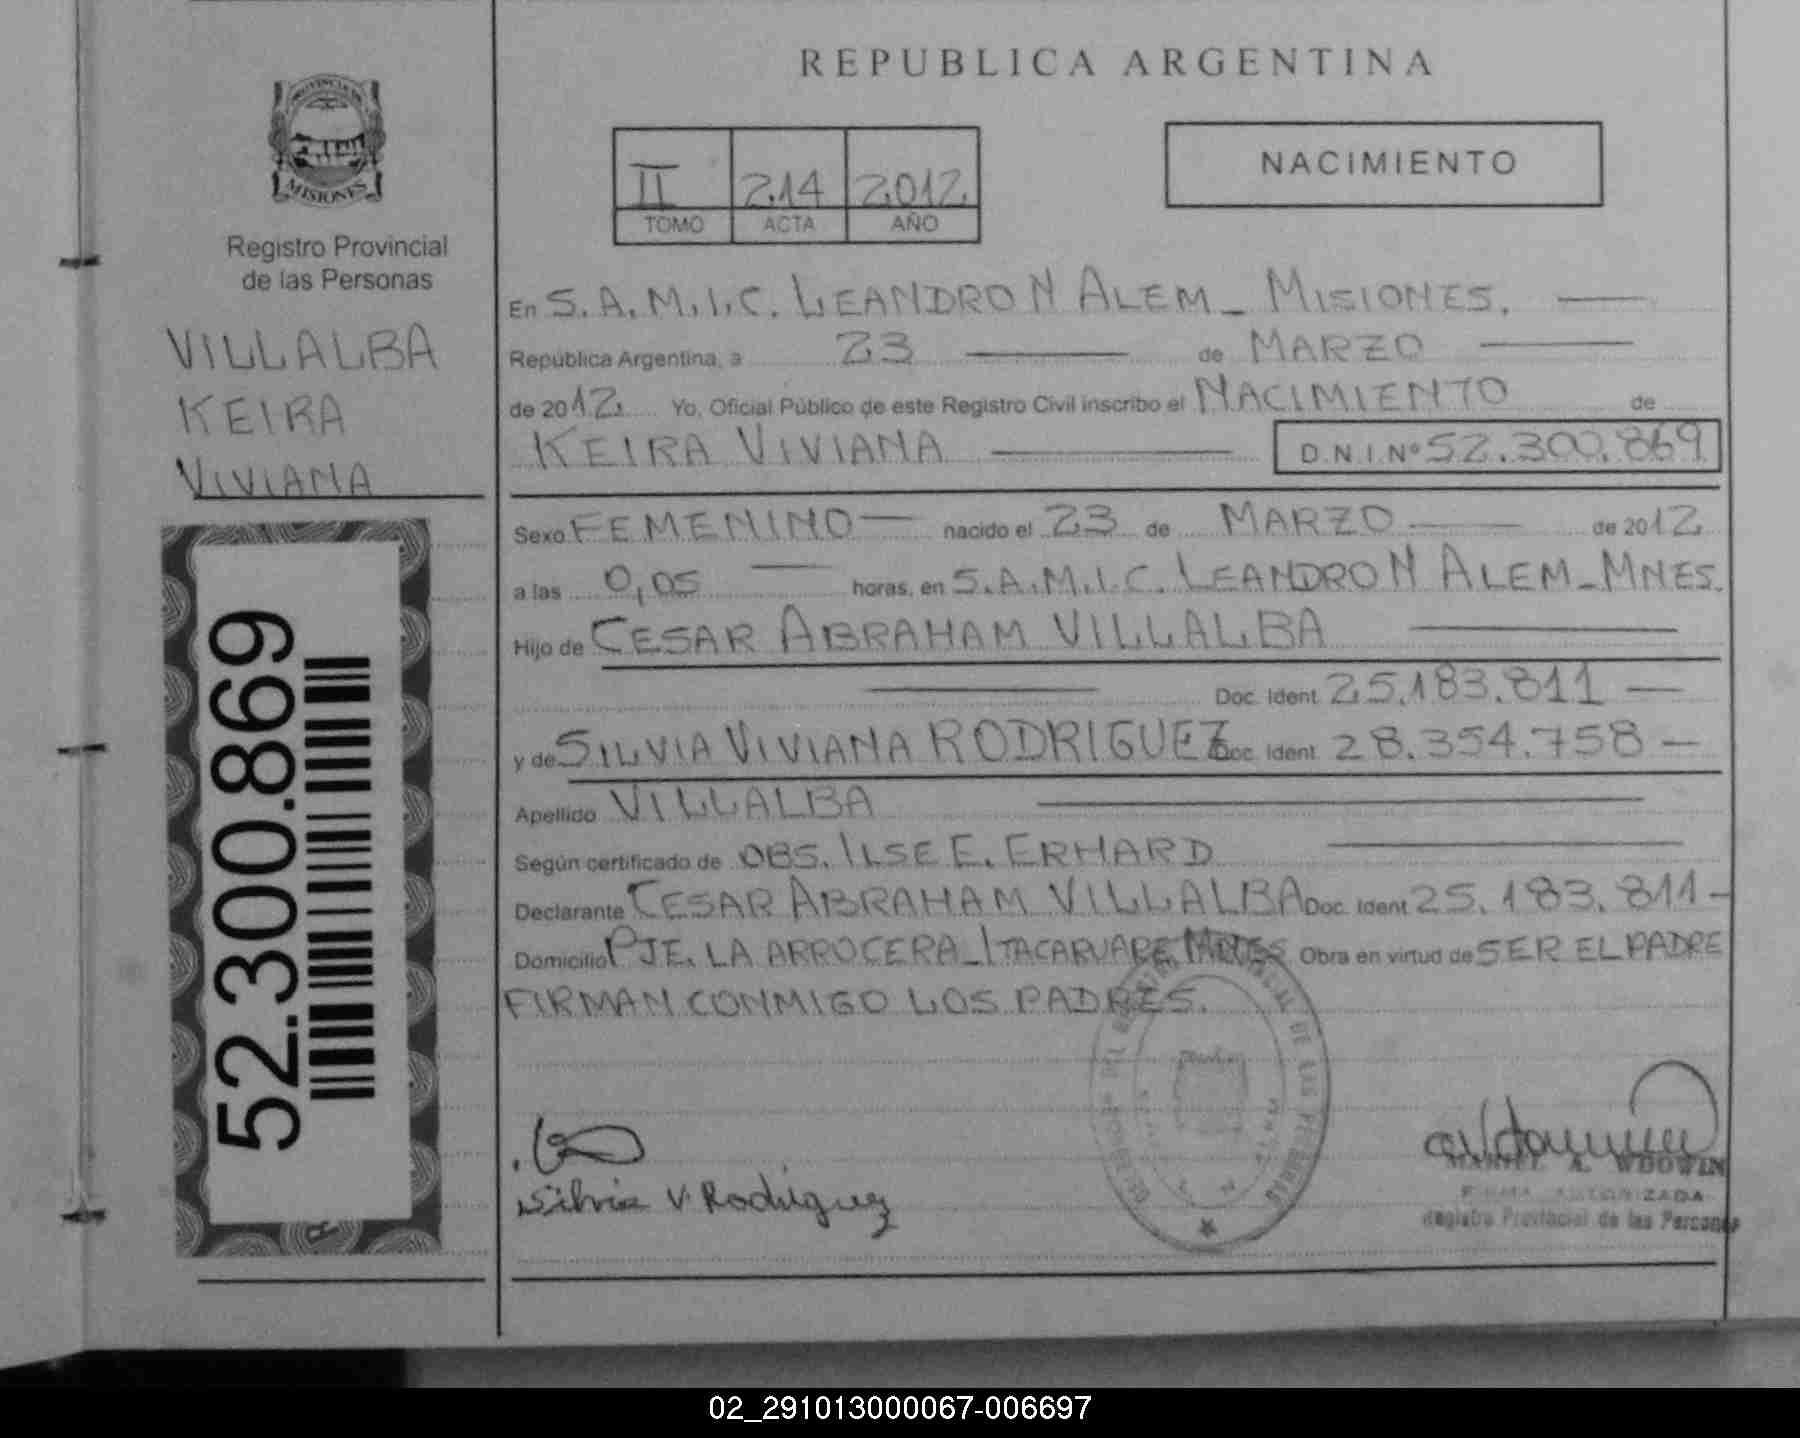 REPUBLICA ARGENTINA
PROVINCIA DE
MISIONES
Registro Provincial
de las Personas
VILLALBA
KEIRA
VIVIANA
52.300.869
II 214 2012
TOMO ACTA AÑO
NACIMIENTO
En S.A.M.I.C. LEANDRO N ALEM_ MISIONES.
República Argentina, a 23 de MARZO
de 2012. Yo, Oficial Público de este Registro Civil inscribo el NACIMIENTO de
KEIRA VIVIANA D.N.I.Nº 52.300.869
Sexo FEMENINO nacido el 23 de MARZO de 2012
a las 0,05 horas, en S.A.M.I.C. LEANDRO N ALEM_MNES.
Hijo de CESAR ABRAHAM VILLALBA
Doc. Ident. 25.183.811
y de SILVIA VIVIANA RODRIGUEZ Doc. Ident. 28.354.758
Apellido VILLALBA
Según certificado de OBS. ILSE E. ERHARD
Declarante CESAR ABRAHAM VILLALBA Doc. Ident. 25.183.811
Domicilio PJE. LA ARROCERA_ITACARUARE MNES Obra en virtud de SER EL PADRE
FIRMAN CONMIGO LOS PADRES.
Silvia V. Rodriguez
A. WDOWIN
FIRMA AUTORIZADA
Registro Provincial de las Personas
02_291013000067-006697